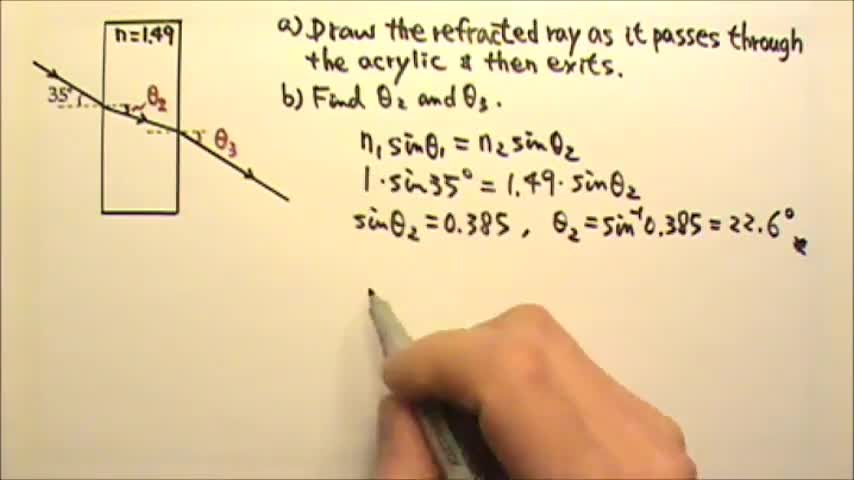 n=1.49
35°
θ₂
θ₃
a) Draw the refracted ray as it passes through
the acrylic & then exits.
b) Find θ₂ and θ₃.
n₁ sinθ₁ = n₂ sinθ₂
1 · sin35° = 1.49 · sinθ₂
sinθ₂ = 0.385 , θ₂ = sin⁻¹ 0.385 = 22.6°